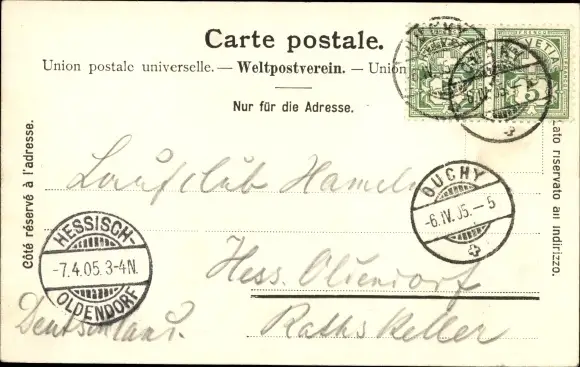 Carte postale.
Union postale universelle. — Weltpostverein. — Union
Nur für die Adresse.
Côté réservé à l'adresse.
Lato riservato all indirizzo.
HELVETIA
5
OUCHY
-6.IV.05.-5
HESSISCH-
-7.4.05.3-4N.
OLDENDORF
Laufclub Hameln
Hess. Oldendorf
Rathskeller
Deutschland.